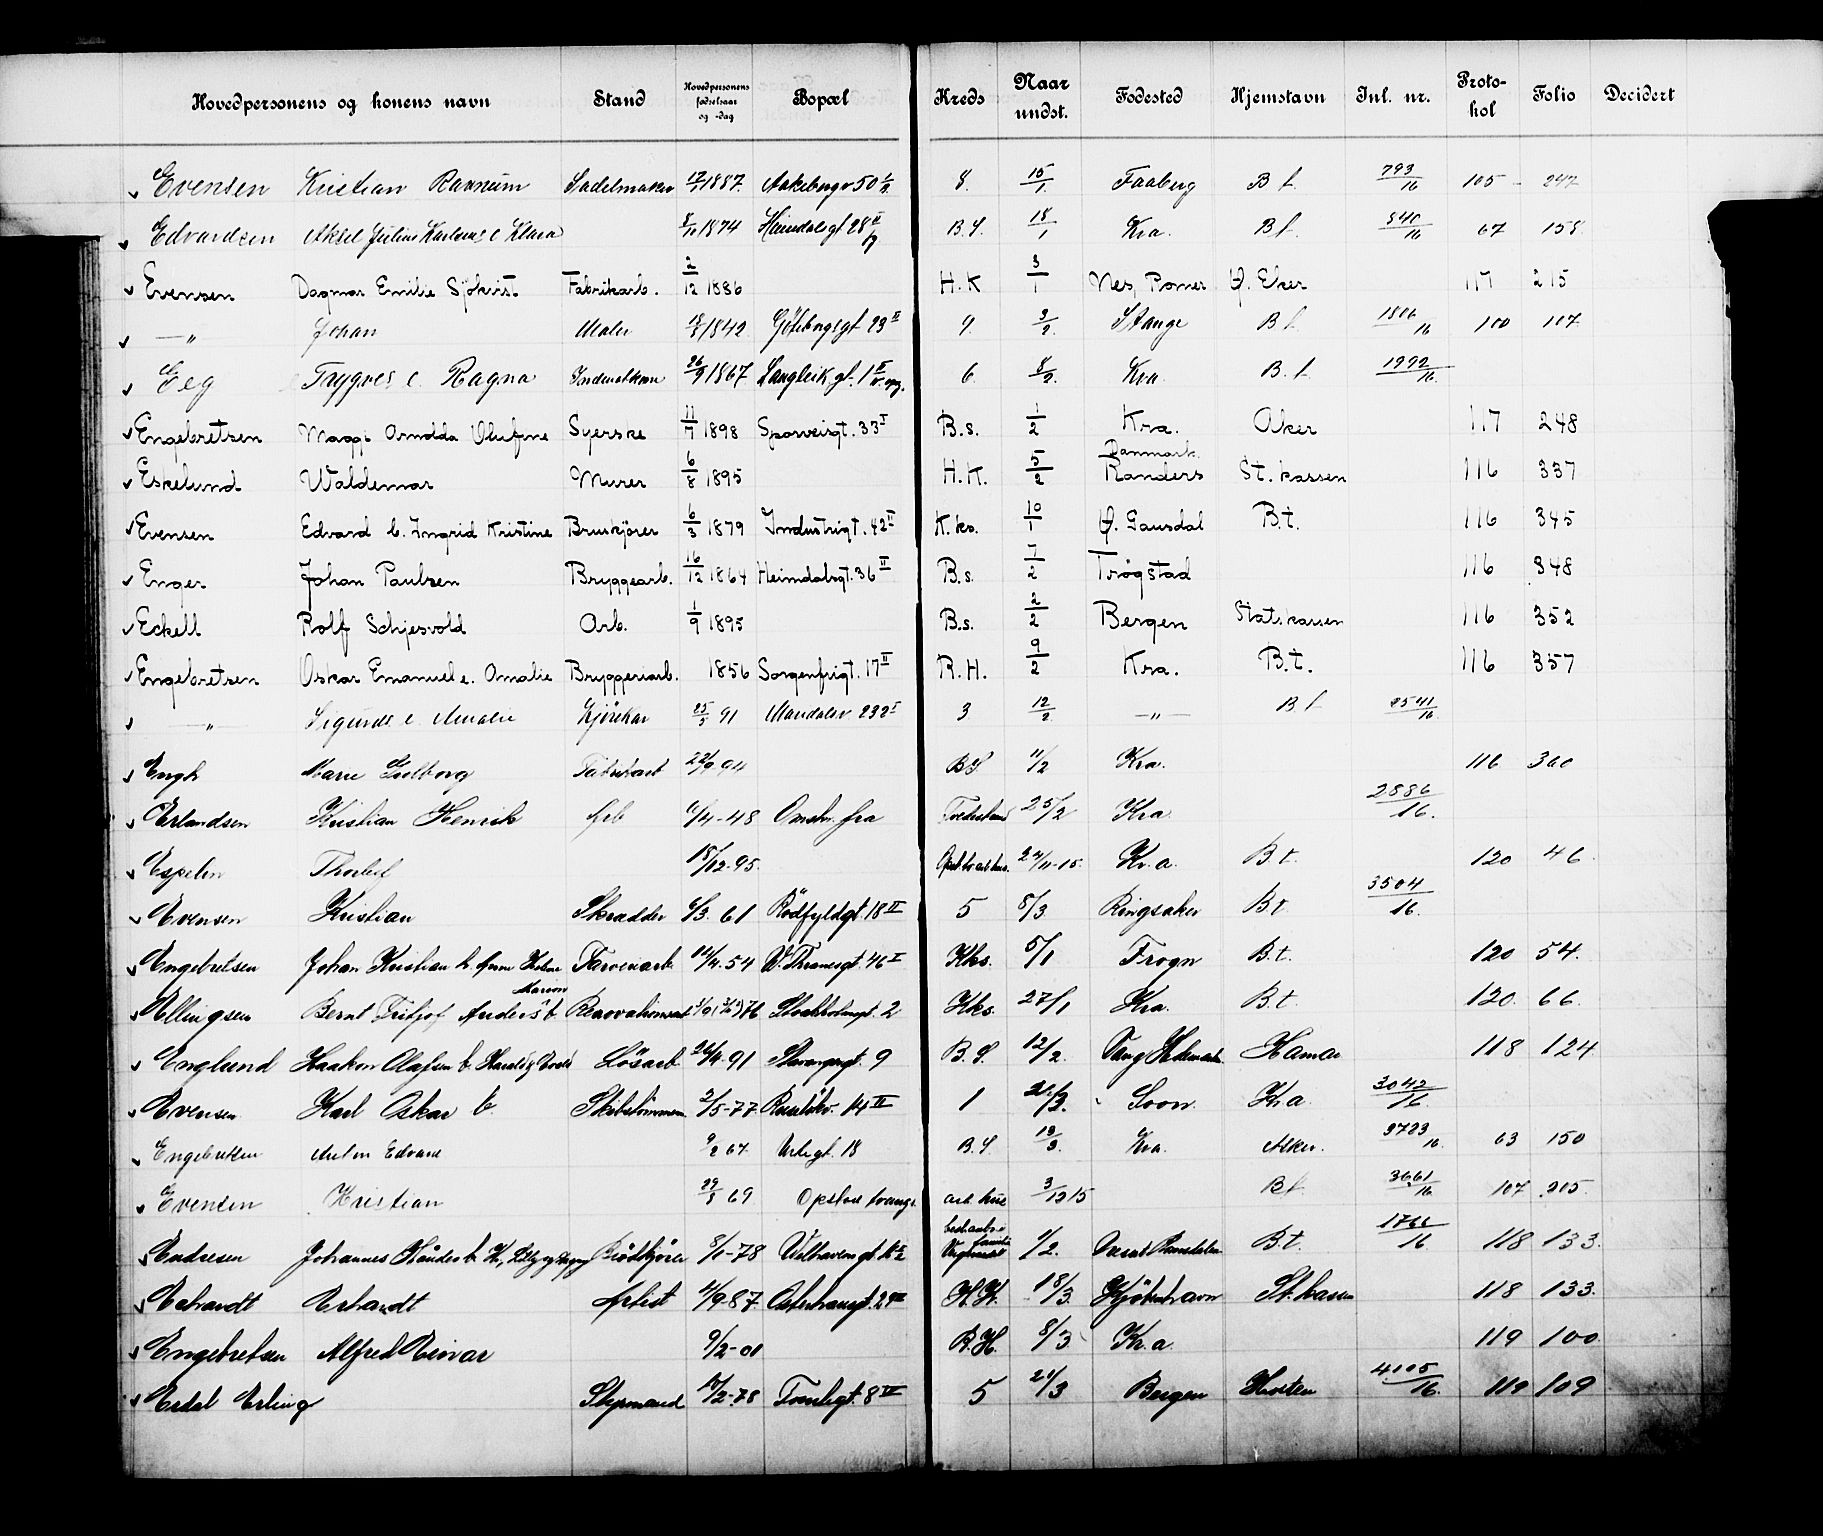 Hovedpersonens og konens navn Stand Hovedpersonens fødselsaar og -dag Bopæl Kreds Naar undst. Fødested Hjemstavn Inl. nr. Protokol Folio Decidert
Evensen Kristian Sadelmaker 1887 Aakebergv 50 8. 15/1 Faaberg B t. 793/16 105 - 247
Edvardsen Aksel Julius Karlens e Klara 8/11 1874 Heimdalsgt 28 B.S. 18/1 Kra. B t. 840/16 67 158
Evensen Dagmar Emilie Sjökvist Fabrikarb. 2/12 1886 H.K 3/1 Nes, Romer. Ø. Eker 117 215
—„— Johan Maler 1842 Göteborggt 23 II 9. 3/2. Stange B t. 1806/16 100 107
Eeg Trygves e. Ragna 26/9 1867 Langleik.gt. 1 6. 8/2. Kra. B. t. 1992/16.
Engebretsen Maggi Arnolda Olufine Syerske 11/7 1898 Sporveisgt. 33 I B.s. 1/2 Kra. Aker 117 248
Eskelund Waldemar Murer 6/8 1895 H.K. 5/2 Danmark Randers St. kassen 116 337
Evensen Edvard e. Ingrid Kristine Bruskjører 6/3 1879 Industrigt. 42 II K.ks. 10/1 Ø. Gausdal B.t. 116 345
Enger Johan Paulsen Bryggearb. 16/12 1864 Heimdalsgt. 36 II B.s. 7/2 Trøgstad 116 348
Eckell Rolf Schjesvold Arb. 1/9 1895 B.s. 2/2 Bergen Statskassen 116 352
Engebretsen Oskar Emanuel e. Amalie Bryggeriarb. 1856 Sorgenfrigt. 17 II R.H. 9/2 Kra. B.t. 116 357
—„— Sigurds e. Amalie Kjörekar 25/5 91 Mandalsv 232 I 3 12/2. —„— B t 2541/16
Engh Marie Gulborg Fabrikarb 22/9 94 BS 11/2 Kra. 116 360
Erlandsen Kristian Henrik Arb 6/4-48 Omstr. fra Tvedestrand 25/2 Kra. 2886/16.
Espelin Thorleif 18/12-95. 24/11-15. Kr.a. B.t. 120 46.
Evensen Kristian Skrædder 6/3. 61 Rödfyldgt. 18 II 5 8/3 Ringsaker B.t. 3504/16.
Engebretsen Johan Kristian h. Farveriarb 4.54 W. Thranesgt. 46 I Kks. 5/1 Frogn B.t. 120 54.
Ellingsen Bernt Fritjof Anders b. Renovationsarb 76 Stockholmgt. 2 Kks. 27/1 Kra. B.t 120. 66.
Englund Haakon Olafsen b. Harald Løsarb. 24/4-91 Stavangergt. 9 B.S. 12/2. Vang Hedemarken Hamar 118 124
Evensen Karl Oskar b. Skibstømmerm 2/5-77. 14 II 1 Soon. Kr.a. 3042/16
Engebretsen Anton Edvard 9/2 67. Urtegt. 18 B.S. 13/3. Kra. Aker. 3723/16. 63 150
Evensen Kristian 29/8 69 Opstod tvangs- arb.hus 3/12 15 B t. 3661/16 107 205.
Endresen Johannes Brødkjører 8/1-78 Welhavensgt 1/2. Romsdalen B.t. 1766/16 118 133.
Echardt Erhardt Artist 4/9-87. H.K. 18/3. Kjöbenhavn St. kassen 118 133.
Engebretsen Alfred Reinar 9/2-01 R.H. 8/3 Kr.a. 119 100.
Erdal Erling Styrmand 17/2-78 Tomtegt. 8 IV 5 21/3 Bergen Horten 4105/16. 119 109